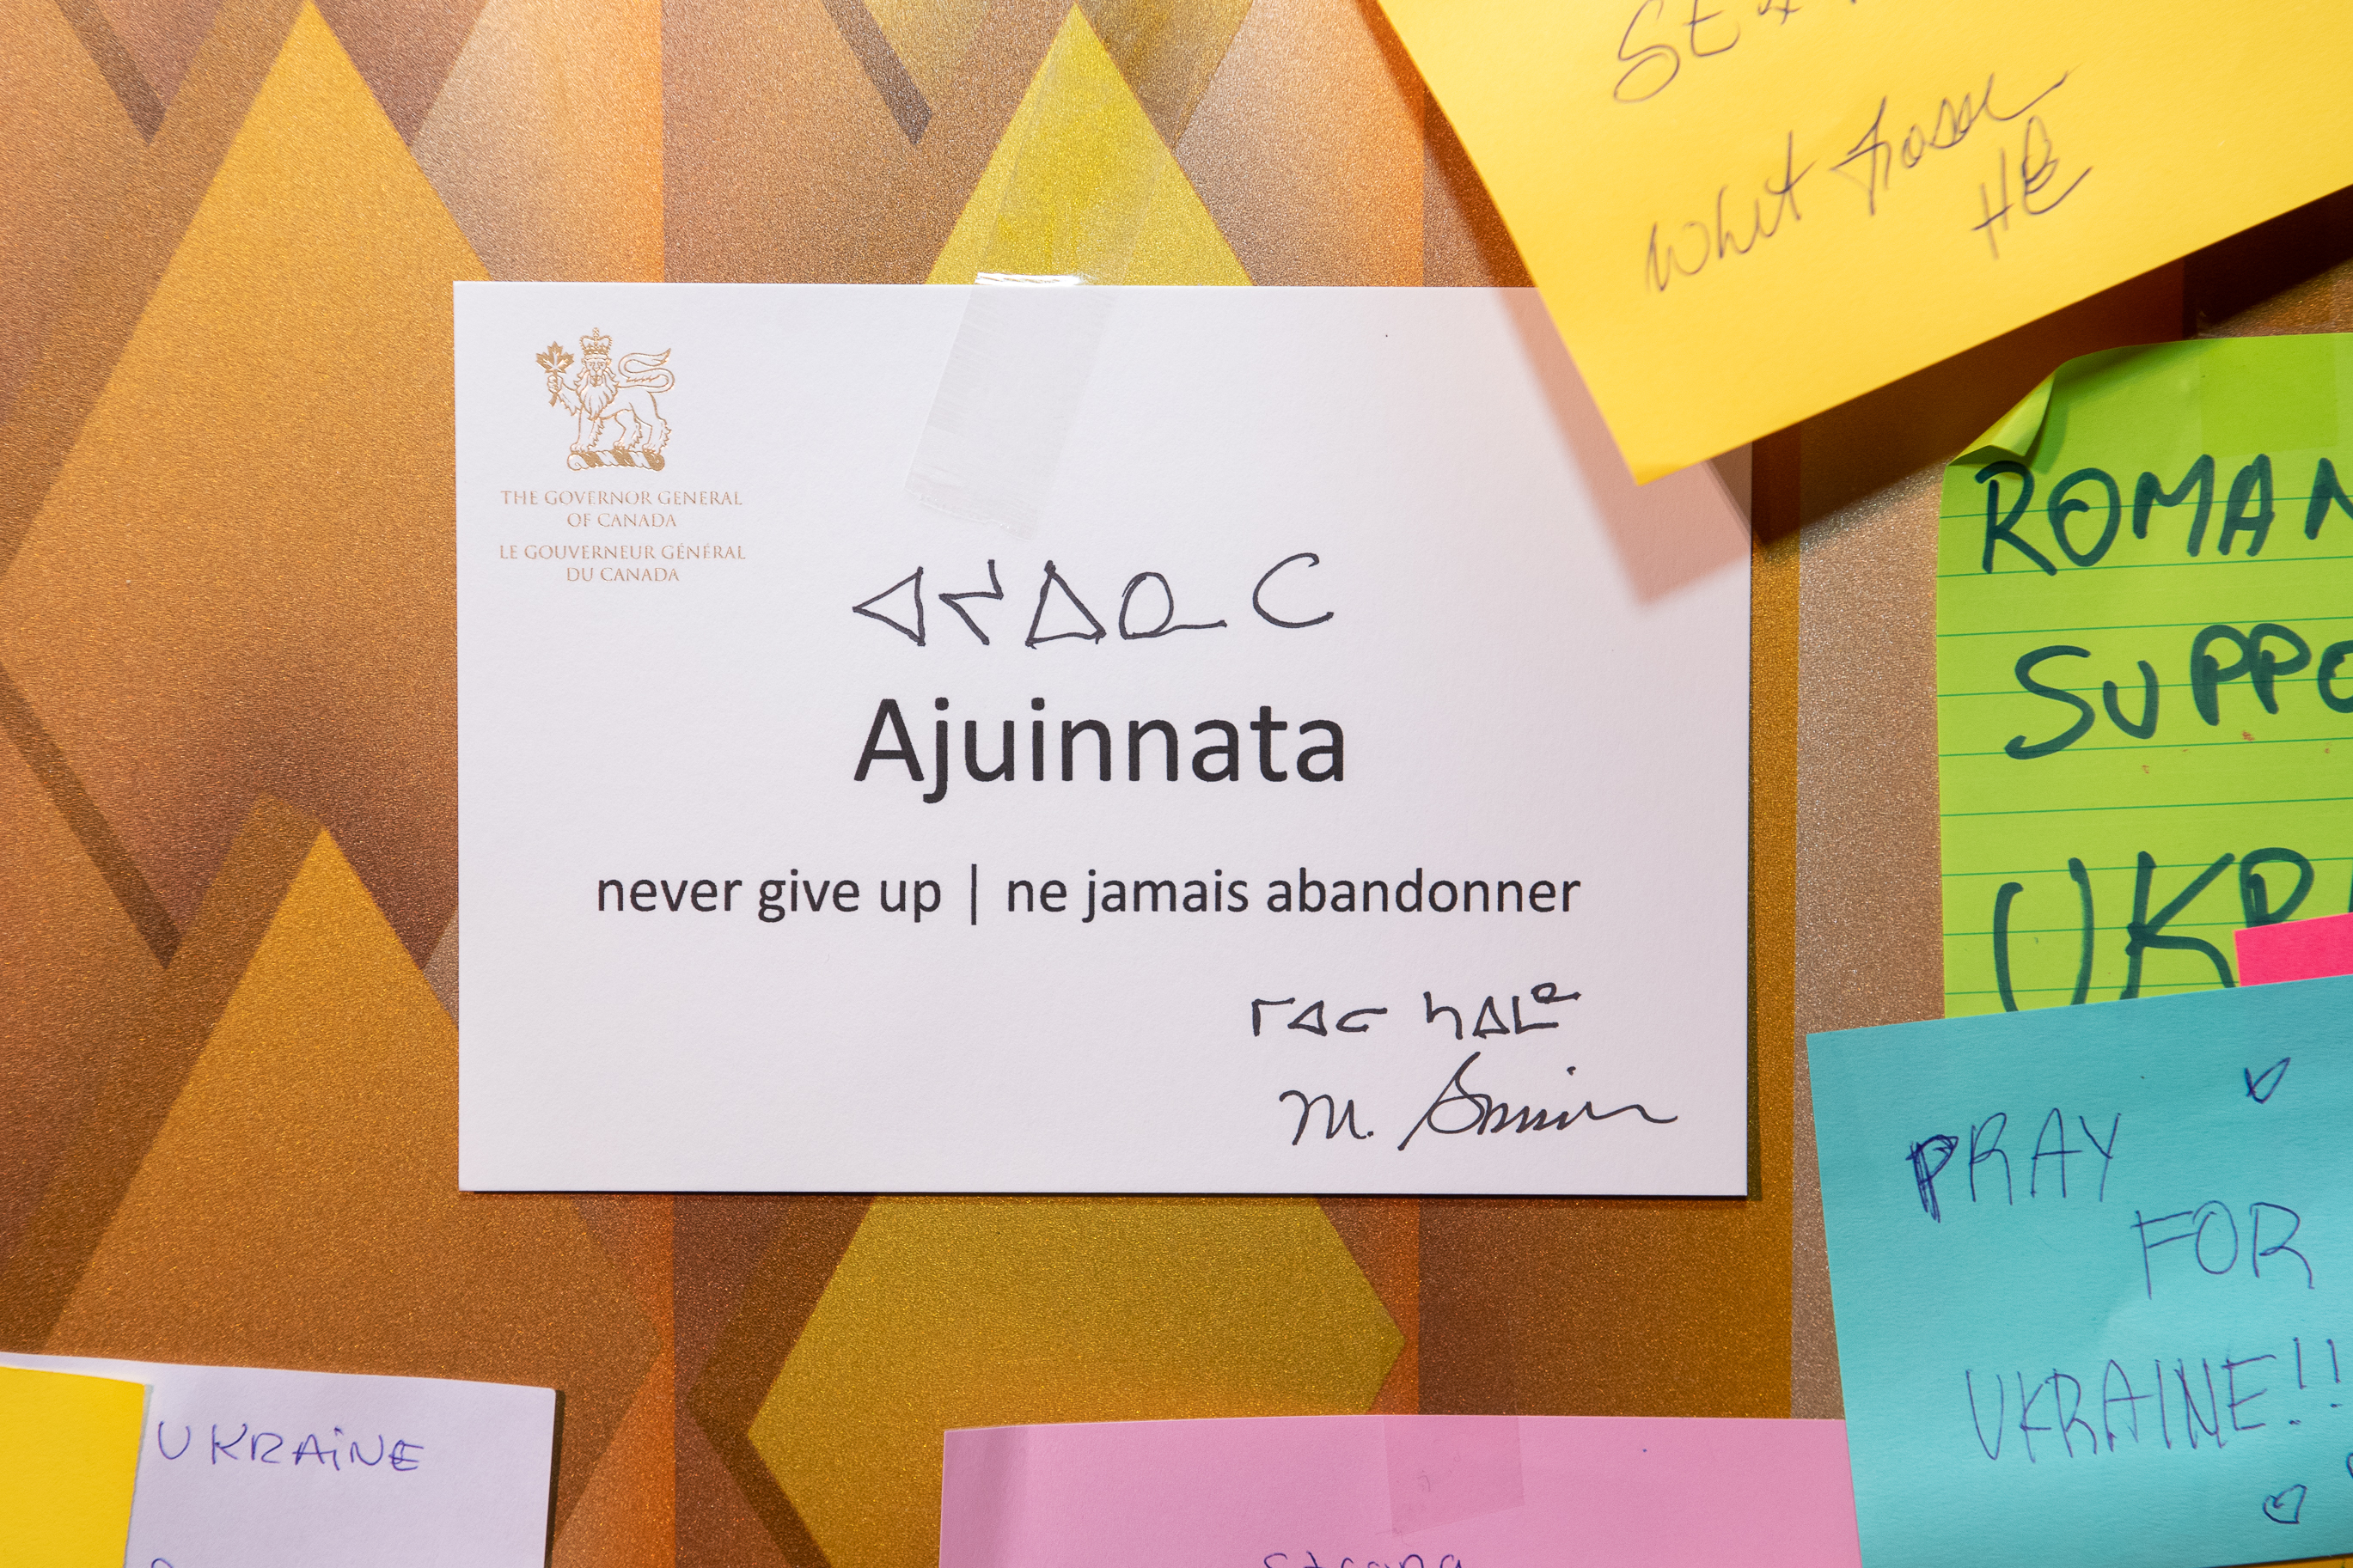 THE GOVERNOR GENERAL
OF CANADA
LE GOUVERNEUR GÉNÉRAL
DU CANADA
ᐊᔪᐃᓇᑕ
Ajuinnata
never give up | ne jamais abandonner
ᒥᐊᓕ ᓴᐃᒪᓐ
M. Simon
ROMAN
SUPPO
UKR
PRAY
FOR
UKRAINE!!
UKRAINE
strong